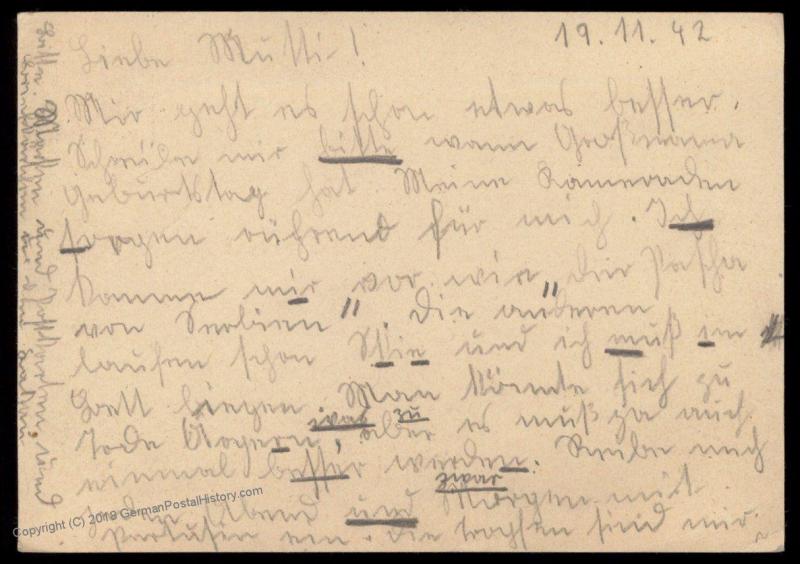 19.11.42
Liebe Mutti!
Mir geht es schon etwas besser.
Schreibe mir bitte wann Großmama
geburtstag hat. Meine Kameraden
sorgen rührend für mich. Ich
komme mir vor wie „der Pascha
von Serbien". Die anderen
laufen schon Skie und ich muß im
Bett liegen. Man könnte sich zu
Tode Ärgern, zwar zu aber es muß ja auch
einmal besser werden. Reibe mich
jeden Abend und zwar Morgen mit
ein. Die tropfen sind mir
Bitte Marken und
Copyright (C) 2018 GermanPostalHistory.com